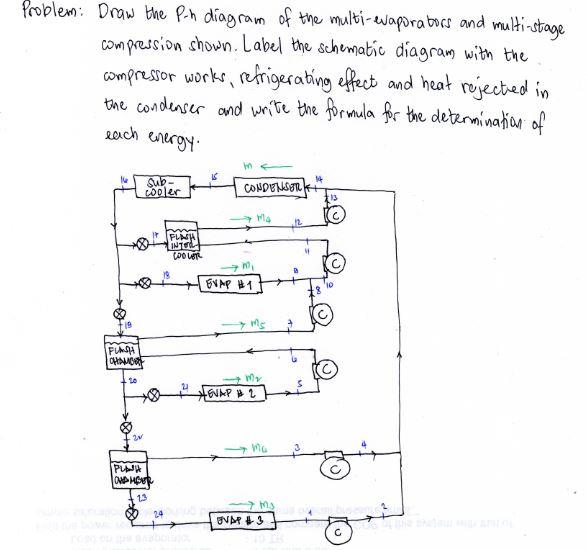 Problem: Draw the P-h diagram of the multi-evaporators and multi-stage
compression shown. Label the schematic diagram with the
compressor works, refrigerating effect and heat rejected in
the condenser and write the formula for the determination of
each energy.
m
16
SUB-
COOLER
15
CONDENSER
14
13
C
m4
12
17
FLASH
INTER
COOLER
11
C
m1
18
EVAP #1
9
10
8
C
19
m5
7
FLASH
CHAMBER
6
C
20
m2
21
EVAP # 2
5
22
m6
3
4
C
FLASH
CHAMBER
23
m3
24
EVAP # 3
1
2
C